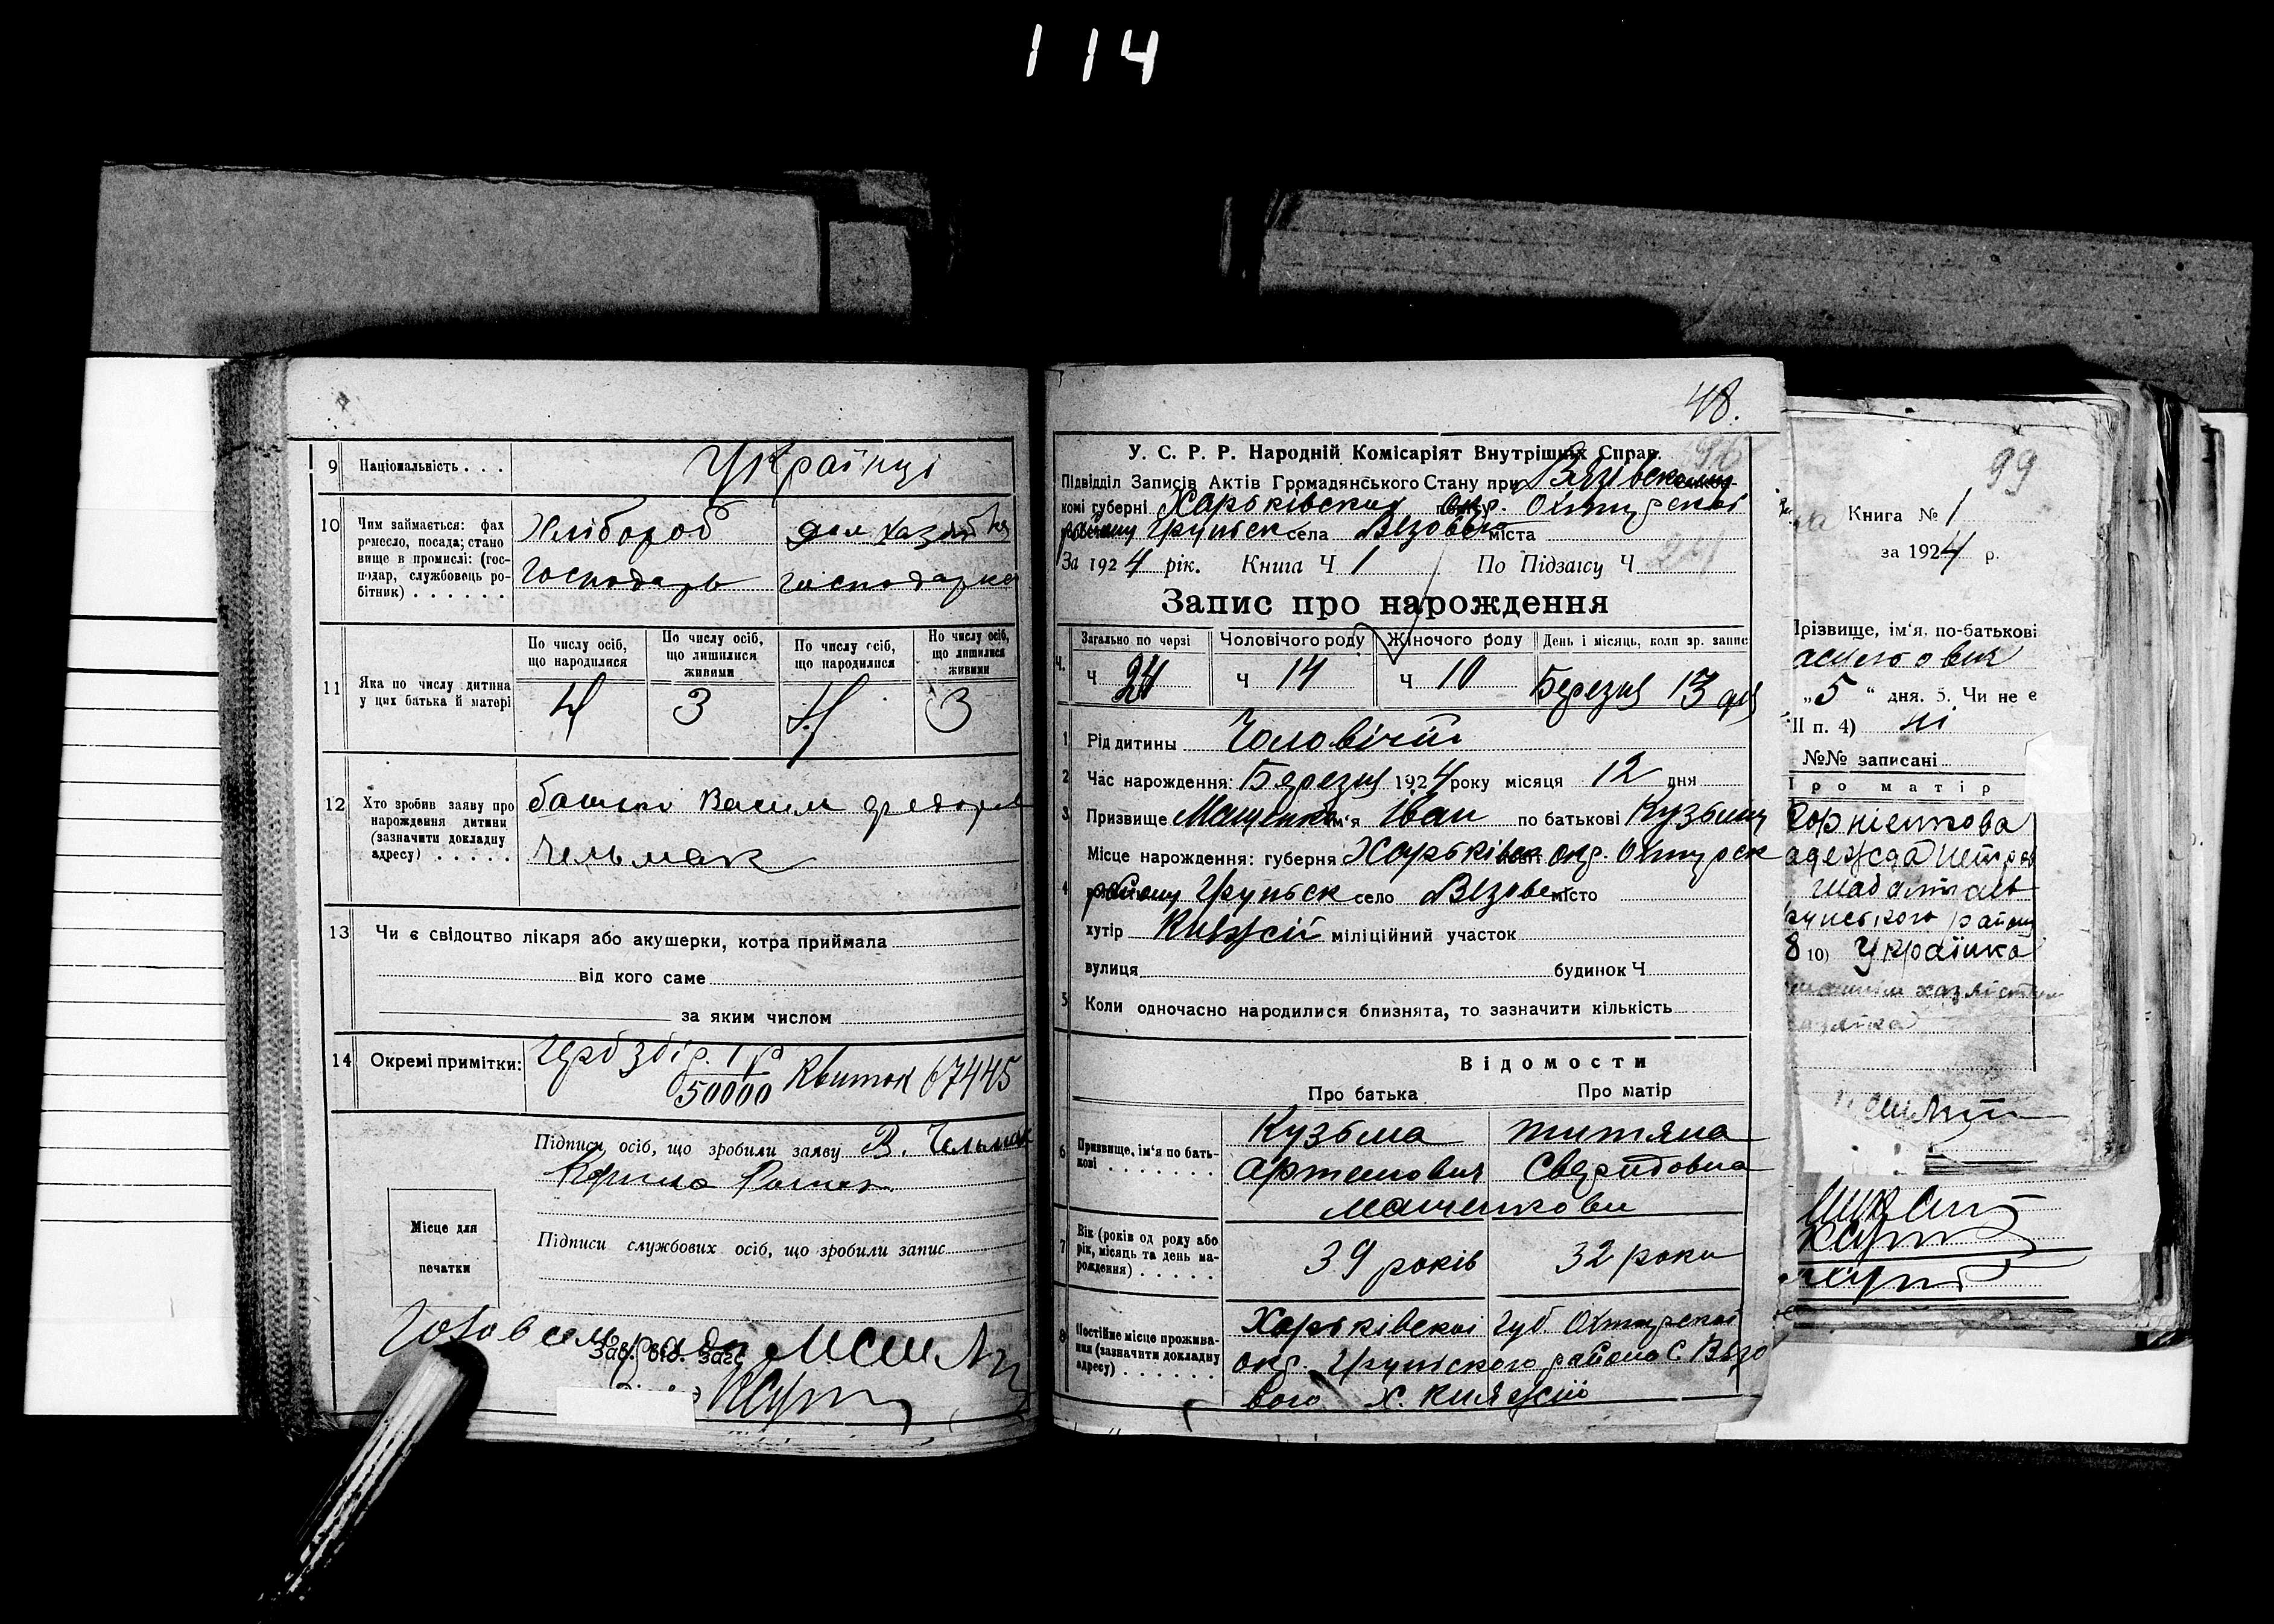 114
9 Національність . . . Українці
10 Чим займається: фах ремесло, посада; становище в промислі: (господар, службовець робітник) . . . . . .
Хлібороб дом хазяйка
Господарь господарка
11 Яка по числу дитина у цих батька й матері
По числу осіб, що народилися
По числу осіб, що лишилися живими
По числу осіб, що народилися
По числу осіб, що лишилися живими
4 3 4 3
12 Хто зробив заяву про нарождення дитини (зазначити докладну адресу) . . . . .
батько Васил
Чельмак
13 Чи є свідоцтво лікаря або акушерки, котра приймала
від кого саме
за яким числом
14 Окремі примітки: Герб збір. 1 р
50000 Квиток 67445
Підписи осіб, що зробили заяву В. Чельмак
Місце для печатки
Підписи службових осіб, що зробили запис
Зав. від. загс
48.
96
У. С. Р. Р. Народній Комісаріят Внутрішніх Справ.
Підвідділ Записів Актів Громадянського Стану при Вязівськ
комі губерні Харьківскоі окр. Охтирскоі
району Грунськ села Вязове міста
За 1924 рік. Книга Ч 1 По Підзагсу Ч 24
Запис про нарождення
Загально по черзі Чоловічого роду Жіночого роду День і місяць, коли зр. запис
Ч. Ч 24 Ч 14 Ч 10 Березня 13 дня
1 Рід дитины Чоловічий
2 Час нарождення: Березня 1924 року місяця 12 дня
3 Призвище Мащенко ім'я Іван по батькові Кузьмич
4 Місце нарождення: губерня Харьківск окр. Охтирск
району Грунськ село Вязове місто
хутір Княжій міліційний участок
вулиця будинок Ч
5 Коли одночасно народилися близнята, то зазначити кількість
Відомости
Про батька Про матір
6 Призвище, ім'я по батькові . . . . . . . .
Кузьма Титяна
Артемович Свиридовна
Мащенкови
7 Вік (років од роду або рік, місяць та день народження) . . . . .
39 років 32 роки
8 Постійне місце проживання (зазначити докладну адресу) . . . . . .
Харьківскоі губ. Охтирскоі
окр. Грунського району С Вязо
вого Х. Княжій
99
Книга № 1
за 1924 р.
Прізвище, ім'я, по-батькові
„5“ дня. 5. Чи не є
ІІ п. 4) ні
№№ записані
Про матір
Українка